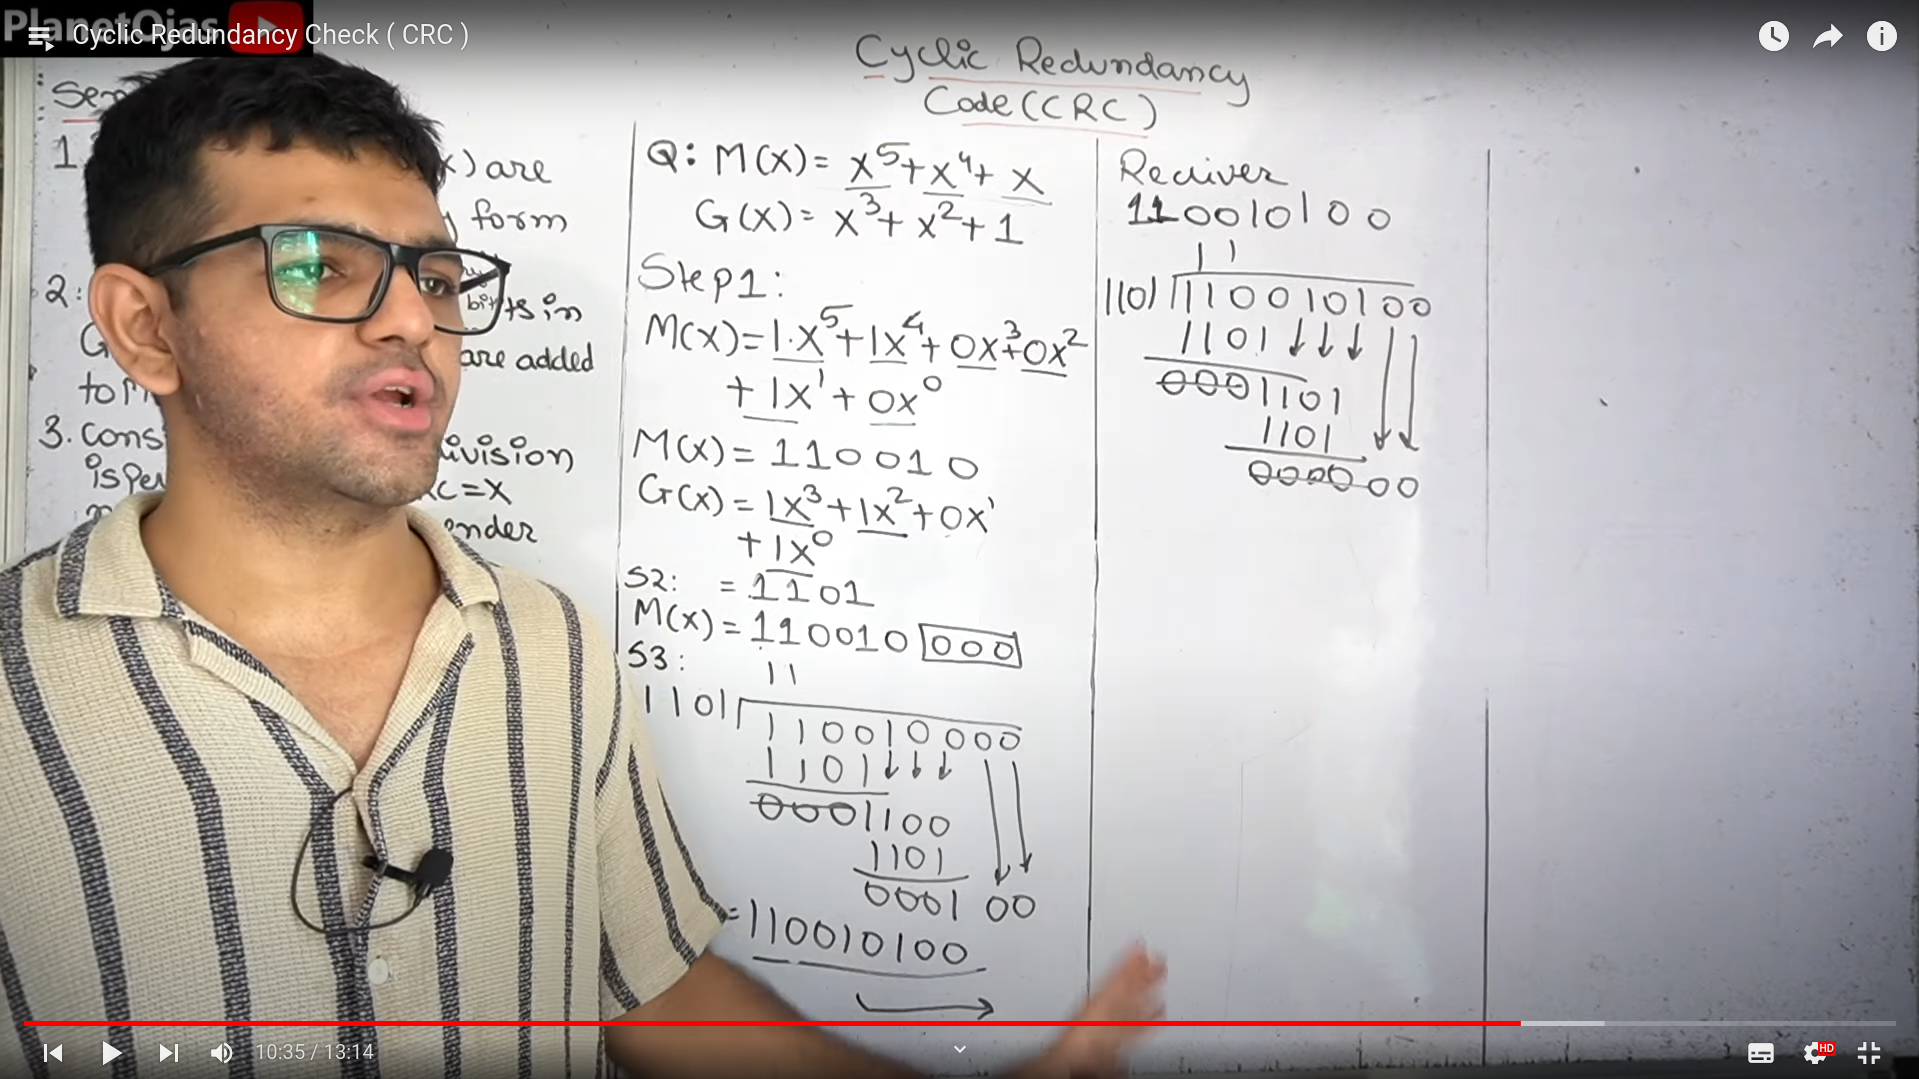 PlanetOjas
Cyclic Redundancy Check ( CRC )
Cyclic Redundancy
Code (CRC)
Sen
1
x) are
form
2:
bits in
G
are added
to M
3. Cons
ivision
is per
RC = X
ender
Q: M(x) = x⁵ + x⁴ + x
G(x) = x³ + x² + 1
Step 1:
M(x) = 1.x⁵ + 1x⁴ + 0x³ + 0x²
+ 1x¹ + 0x⁰
M(x) = 110010
G(x) = 1x³ + 1x² + 0x¹
+ 1x⁰
S2: = 1101
M(x) = 110010 000
S3:
11
1101 110010000
1101
0001100
1101
0001 00
= 110010100
Reciver
110010100
11
1101 110010100
1101
0001101
1101
000000
10:35 / 13:14
HD